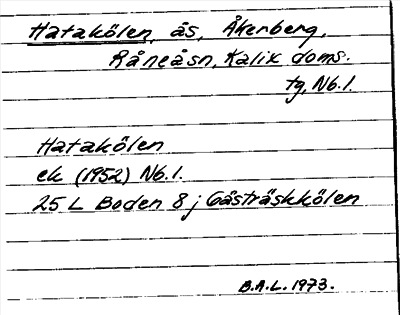 Hatakölen, ås, Åkerberg,
Råneåsn, Kalix doms.
tg, Nb.l.
Hatakölen
ek (1952) Nb.l.
25 L Boden 8 j Gästräskkölen
B.A.L. 1973.